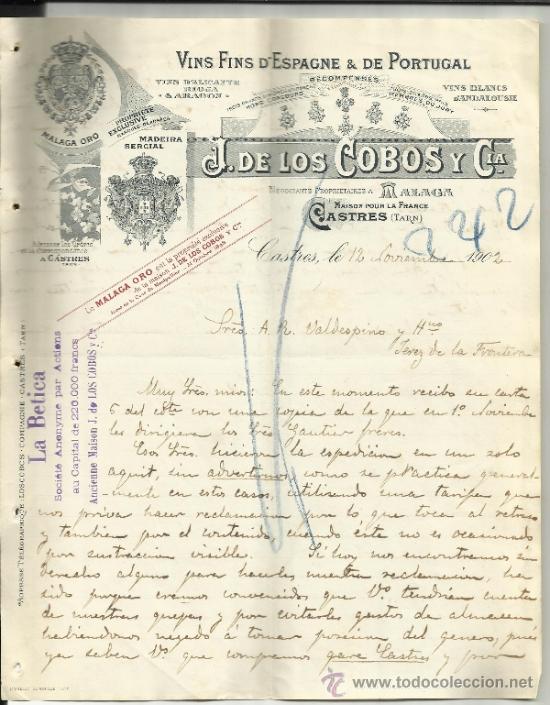 VINS FINS D'ESPAGNE & DE PORTUGAL
VINS D'ALICANTE
RIOJA
& ARAGON
RECOMPENSES
HORS CONCOURS
MEMBRES DU JURY
VINS BLANCS
D'ANDALOUSIE
MALAGA ORO
PROPRIÉTÉ
EXCLUSIVE
MADEIRA
SERCIAL
J. DE LOS COBOS Y CIA
NÉGOCIANTS PROPRIÉTAIRES A MALAGA
MAISON POUR LA FRANCE
CASTRES (TARN)
A CASTRES
TARN
242
Castres, le 12 Noviembre 1902
Le MALAGA ORO est la propriété exclusive
de la maison J. DE LOS COBOS Y Cie
La Betica
Société Anonyme par Actions
au Capital de 220.000 francs
Ancienne Maison J. de LOS COBOS y Cie
ADRESSE TÉLÉGRAPHIQUE: LOSCOBOS-COMPAGNE-CASTRES (TARN)
Sres. A. R. Valdespino y Hno
Jerez de la Frontera
Muy Sres. mios: En este momento recibo su carta
6 del cte con una copia de la que en 1º Noviembre
les dirigieron los Sres Gautier frères.
Esos Sres. hicieron la expedicion en un solo
aquit, sin advertirnos como se práctica general-
mente en estos casos, utilizando una tarifa que
nos priva hacer reclamacion por lo que toca al retraso
y tambien por el contenido, cuando éste no es ocasionado
por sustraccion visible. Si hoy nos encontramos sin
derecho alguno para hacerles nuestra reclamacion, ha
sido porque eramos convencidos que Vds tendrian cuenta
de nuestras quejas y por evitarles gastos de almacen
habiendonos negado á tomar posesion del genero, pués
ya saben Vs. que compramos gare Castres y por
todocoleccion
www.todocoleccion.net